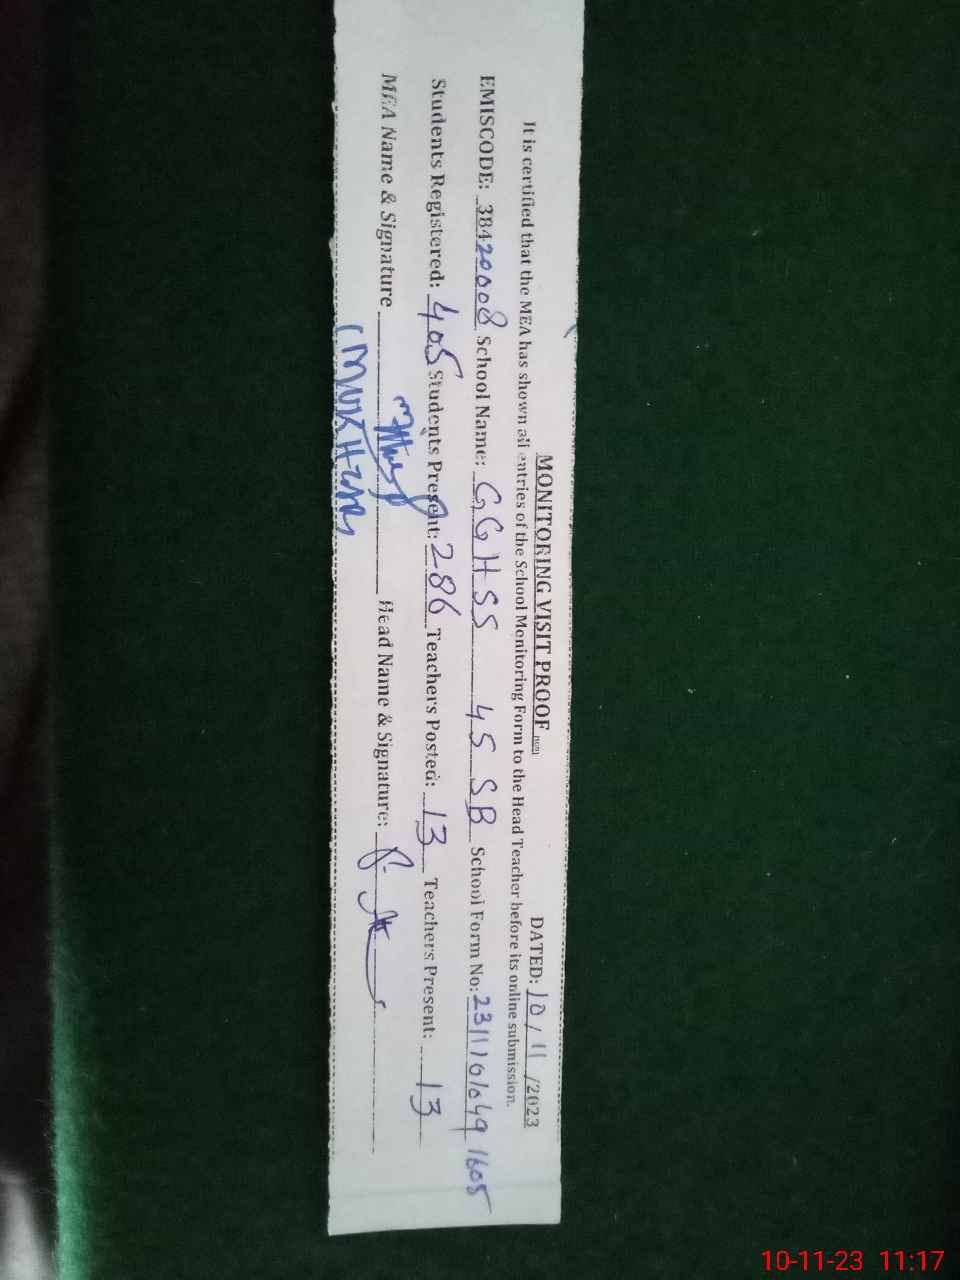 MONITORING VISIT PROOF
DATED: 10/11/2023
It is certified that the MEA has shown all entries of the School Monitoring Form to the Head Teacher before its online submission.
EMISCODE: 38420008 School Name: GGHSS 45 SB School Form No: 23111010491605
Students Registered: 405 Students Present: 286 Teachers Posted: 13 Teachers Present: 13
MEA Name & Signature Head Name & Signature:
10-11-23 11:17